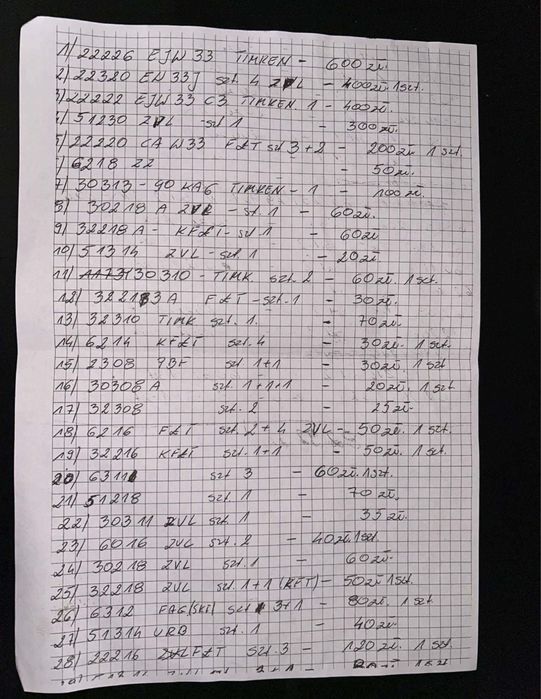 1/ 22226 EJW 33 TIMKEN - 600 zł.
2/ 22320 EW 33J szt. 4 ZVL - 400 zł. 1 szt.
3/ 22222 EJW 33 C3 TIMKEN. 1 - 400 zł.
4/ 51230 ZVL - szt 1 - 300 zł.
5/ 22220 CA W33 FŁT szt 3+2 - 200 zł. 1 szt.
6/ 6218 ZZ - 50 zł.
7/ 30313 - 90 KA6 TIMKEN - 1 - 100 zł.
8/ 30218 A ZVL - szt. 1 - 60 zł.
9/ 32218 A - KFŁT - szt 1 - 60 zł
10/ 51314 ZVL - szt 1 - 20 zł.
11/ 30310 - TIMK szt. 2 - 60 zł. 1 szt.
12/ 32213 A FŁT - szt. 1 - 30 zł.
13/ 32310 TIMK szt. 1. - 70 zł.
14/ 6214 KFŁT szt. 4 - 30 zł. 1 szt.
15/ 2308 PBF szt 1+1 - 30 zł. 1 szt
16/ 30308 A szt 1+1+1 - 20 zł. 1 szt
17/ 32308 szt. 2 - 25 zł.
18/ 6216 FŁT szt 2+4 ZVL - 50 zł. 1 szt.
19/ 32216 KFŁT szt. 1+1 - 50 zł. 1 szt.
20/ 6311 szt 3 - 60 zł. 1 szt.
21/ 51218 szt 1 - 70 zł.
22/ 30311 ZVL szt 1 - 35 zł.
23/ 6016 ZVL szt. 2 - 40 zł 1 szt.
24/ 30218 ZVL szt. 1 - 60 zł.
25/ 32218 ZVL szt. 1+1 (KFT) - 50 zł 1 szt.
26/ 6312 FAG (SKF) szt 3+1 - 80 zł. 1 szt
27/ 51314 URB szt. 1 - 40 zł.
28/ 22216 FŁT szt. 3 - 120 zł. 1 szt.